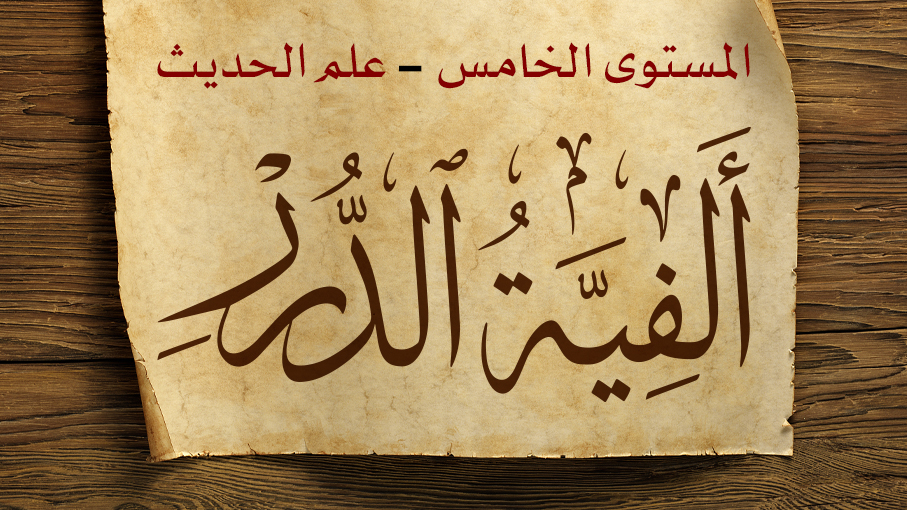 المستوى الخامس - علم الحديث
أَلْفِيَّةُ ٱلدُّرَرِ